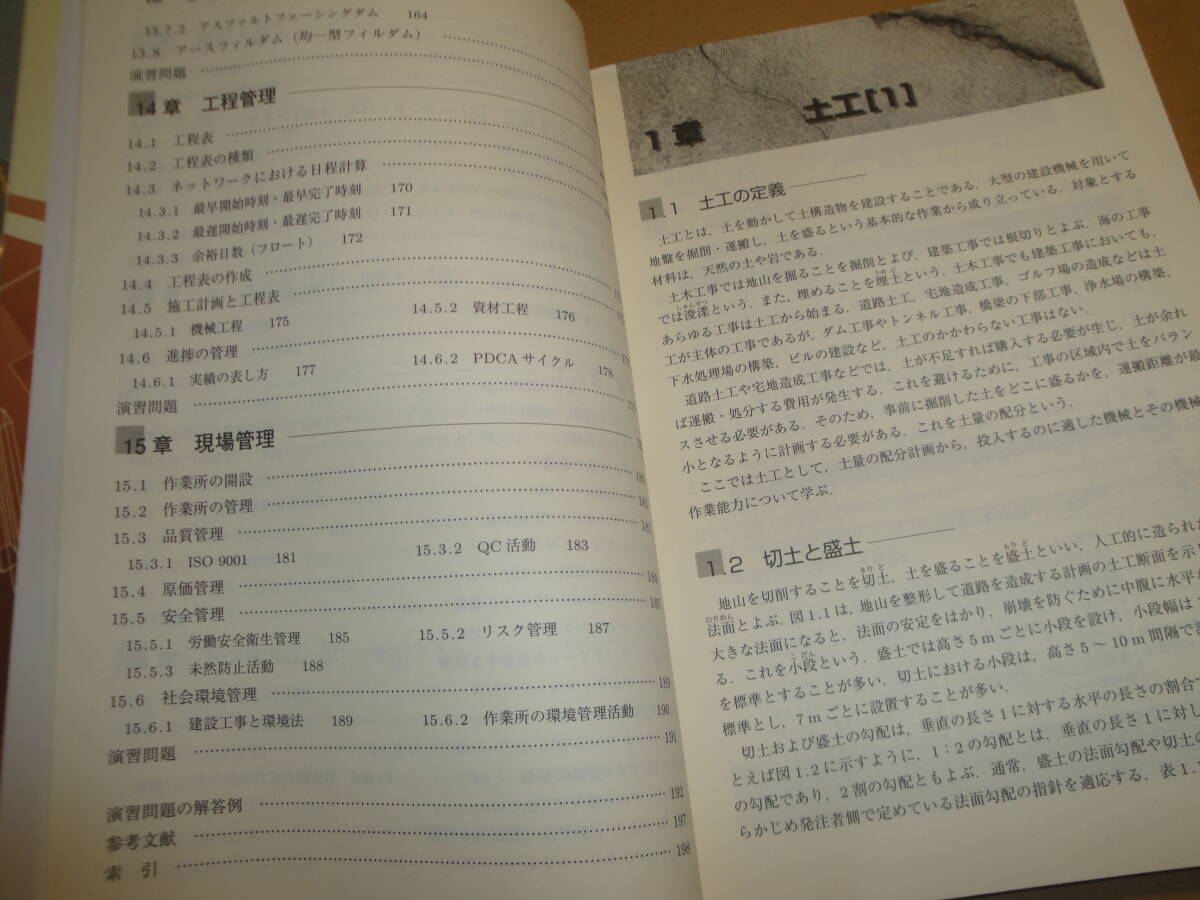 13.7.2 アスファルトフェーシングダム 164
13.8 アースフィルダム（均一型フィルダム）
演習問題
14章 工程管理
14.1 工程表
14.2 工程表の種類
14.3 ネットワークにおける日程計算
14.3.1 最早開始時刻・最早完了時刻 170
14.3.2 最遅開始時刻・最遅完了時刻 171
14.3.3 余裕日数（フロート） 172
14.4 工程表の作成
14.5 施工計画と工程表
14.5.1 機械工程 175 14.5.2 資材工程 176
14.6 進捗の管理
14.6.1 実績の表し方 177 14.6.2 PDCAサイクル 178
演習問題
15章 現場管理
15.1 作業所の開設
15.2 作業所の管理
15.3 品質管理
15.3.1 ISO 9001 181 15.3.2 QC活動 183
15.4 原価管理 184
15.5 安全管理 185
15.5.1 労働安全衛生管理 185 15.5.2 リスク管理 187
15.5.3 未然防止活動 188
15.6 社会環境管理 189
15.6.1 建設工事と環境法 189 15.6.2 作業所の環境管理活動 190
演習問題 191
演習問題の解答例 192
参考文献 197
索 引 198
1章 土工[1]
1.1 土工の定義
土工とは，土を動かして土構造物を建設することである．大型の建設機械を用いて
地盤を掘削・運搬し，土を盛るという基本的な作業から成り立っている．対象とする
材料は，天然の土や岩である．
土木工事では地山を掘ることを掘削とよび，建築工事では根切りとよぶ．海の工事
では浚渫という．また，埋めることを埋土という．土木工事でも建築工事においても，
あらゆる工事は土工から始まる．道路土工，宅地造成工事，ゴルフ場の造成などは土
工が主体の工事であるが，ダム工事やトンネル工事，橋梁の下部工事，浄水場の構築，
下水処理場の構築，ビルの建設など，土工のかかわらない工事はない．
道路土工や宅地造成工事などでは，土が不足すれば購入する必要が生じ，土が余れ
ば運搬・処分する費用が発生する．これを避けるために，工事の区域内で土をバラン
スさせる必要がある．そのため，事前に掘削した土をどこに盛るかを，運搬距離が最
小となるように計画する必要がある．これを土量の配分という．
ここでは土工として，土量の配分計画から，投入するのに適した機械とその機械
作業能力について学ぶ．
1.2 切土と盛土
地山を切削することを切土，土を盛ることを盛土といい，人工的に造られ
法面とよぶ．図1.1は，地山を整形して道路を造成する計画の土工断面を示
大きな法面になると，法面の安定をはかり，崩壊を防ぐために中腹に水平
る．これを小段という．盛土では高さ5mごとに小段を設け，小段幅は
を標準とすることが多い．切土における小段は，高さ5～10m間隔で
標準とし，7mごとに設置することが多い．
切土および盛土の勾配は，垂直の長さ1に対する水平の長さの割合で
とえば図1.2に示すように，1：2の勾配とは，垂直の長さ1に対し
の勾配であり，2割の勾配ともよぶ．通常，盛土の法面勾配や切土の
らかじめ発注者側で定めている法面勾配の指針を適応する．表1.